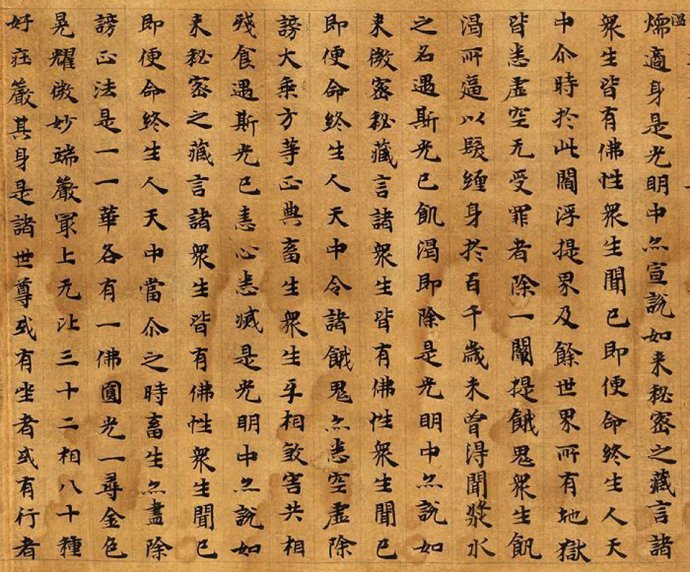 煗適身是光明中亦宣說如来秘密之藏言諸
衆生皆有佛性衆生聞已即便命終生人天
中尒時於此閻浮提界及餘世界所有地獄
皆悉虛空无受罪者除一闡提餓鬼衆生飢
渴所逼以髮纏身於百千歲未曾得聞漿水
之名遇斯光已飢渴即除是光明中亦說如
来微密秘藏言諸衆生皆有佛性衆生聞已
即便命終生人天中令諸餓鬼亦悉空虛除
謗大乘方等正典畜生衆生乎相煞害共相
殘食遇斯光已恚心悉滅是光明中亦說如
来秘密之藏言諸衆生皆有佛性衆生聞已
即便命終生人天中當尒之時畜生亦盡除
謗正法是一一華各有一佛圓光一尋金色
晃耀微妙端嚴冣上无比三十二相八十種
好莊嚴其身是諸世尊或有坐者或有行者